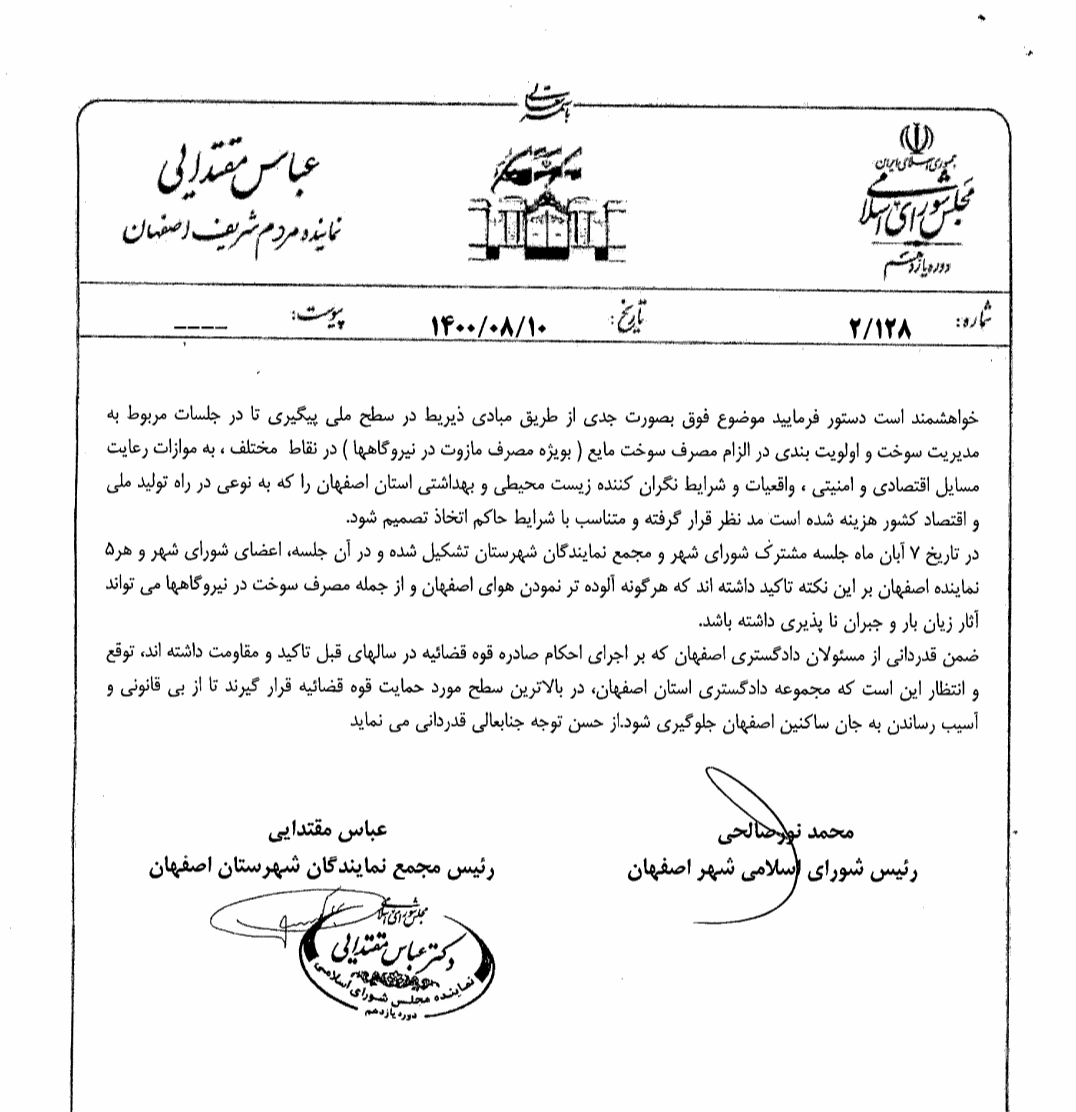 باسمه تعالی
جمهوری اسلامی ایران
مجلس شورای اسلامی
دوره یازدهم
عباس مقتدایی
نماینده مردم شریف اصفهان
شماره: ۲/۱۲۸
تاریخ: ۱۴۰۰/۰۸/۱۰
پیوست: ----
خواهشمند است دستور فرمایید موضوع فوق بصورت جدی از طریق مبادی ذیربط در سطح ملی پیگیری تا در جلسات مربوط به
مدیریت سوخت و اولویت بندی در الزام مصرف سوخت مایع ( بویژه مصرف مازوت در نیروگاهها ) در نقاط مختلف ، به موازات رعایت
مسایل اقتصادی و امنیتی ، واقعیات و شرایط نگران کننده زیست محیطی و بهداشتی استان اصفهان را که به نوعی در راه تولید ملی
و اقتصاد کشور هزینه شده است مد نظر قرار گرفته و متناسب با شرایط حاکم اتخاذ تصمیم شود.
در تاریخ ۷ آبان ماه جلسه مشترک شورای شهر و مجمع نمایندگان شهرستان تشکیل شده و در آن جلسه، اعضای شورای شهر و هر۵
نماینده اصفهان بر این نکته تاکید داشته اند که هرگونه آلوده تر نمودن هوای اصفهان و از جمله مصرف سوخت در نیروگاهها می تواند
آثار زیان بار و جبران نا پذیری داشته باشد.
ضمن قدردانی از مسئولان دادگستری اصفهان که بر اجرای احکام صادره قوه قضائیه در سالهای قبل تاکید و مقاومت داشته اند، توقع
و انتظار این است که مجموعه دادگستری استان اصفهان، در بالاترین سطح مورد حمایت قوه قضائیه قرار گیرند تا از بی قانونی و
آسیب رساندن به جان ساکنین اصفهان جلوگیری شود.از حسن توجه جنابعالی قدردانی می نماید
محمد نورصالحی
رئیس شورای اسلامی شهر اصفهان
عباس مقتدایی
رئیس مجمع نمایندگان شهرستان اصفهان
مجلس شورای اسلامی
دکتر عباس مقتدایی
نماینده مجلس شورای اسلامی
دوره یازدهم